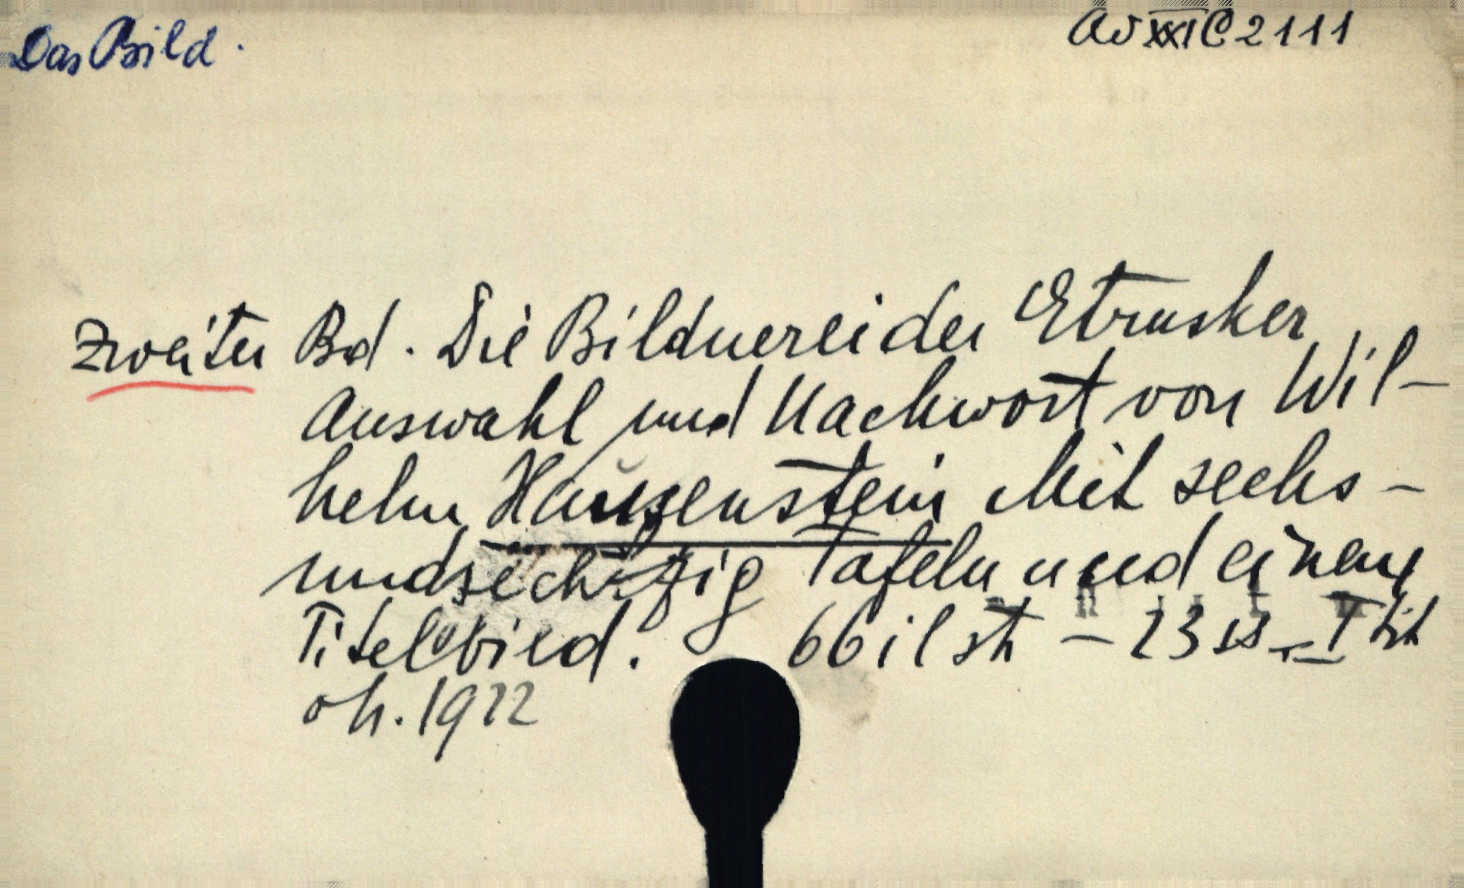 Das Bild.
Av XXI C 2111
Zweiter Bd. Die Bildnerei der Etrusker
Auswahl und Nachwort von Wil-
helm Hausenstein Mit sechs-
undsechzig Tafeln und einem
Titelbild. 66 il st - 23 ss - I tit
oh. 1922